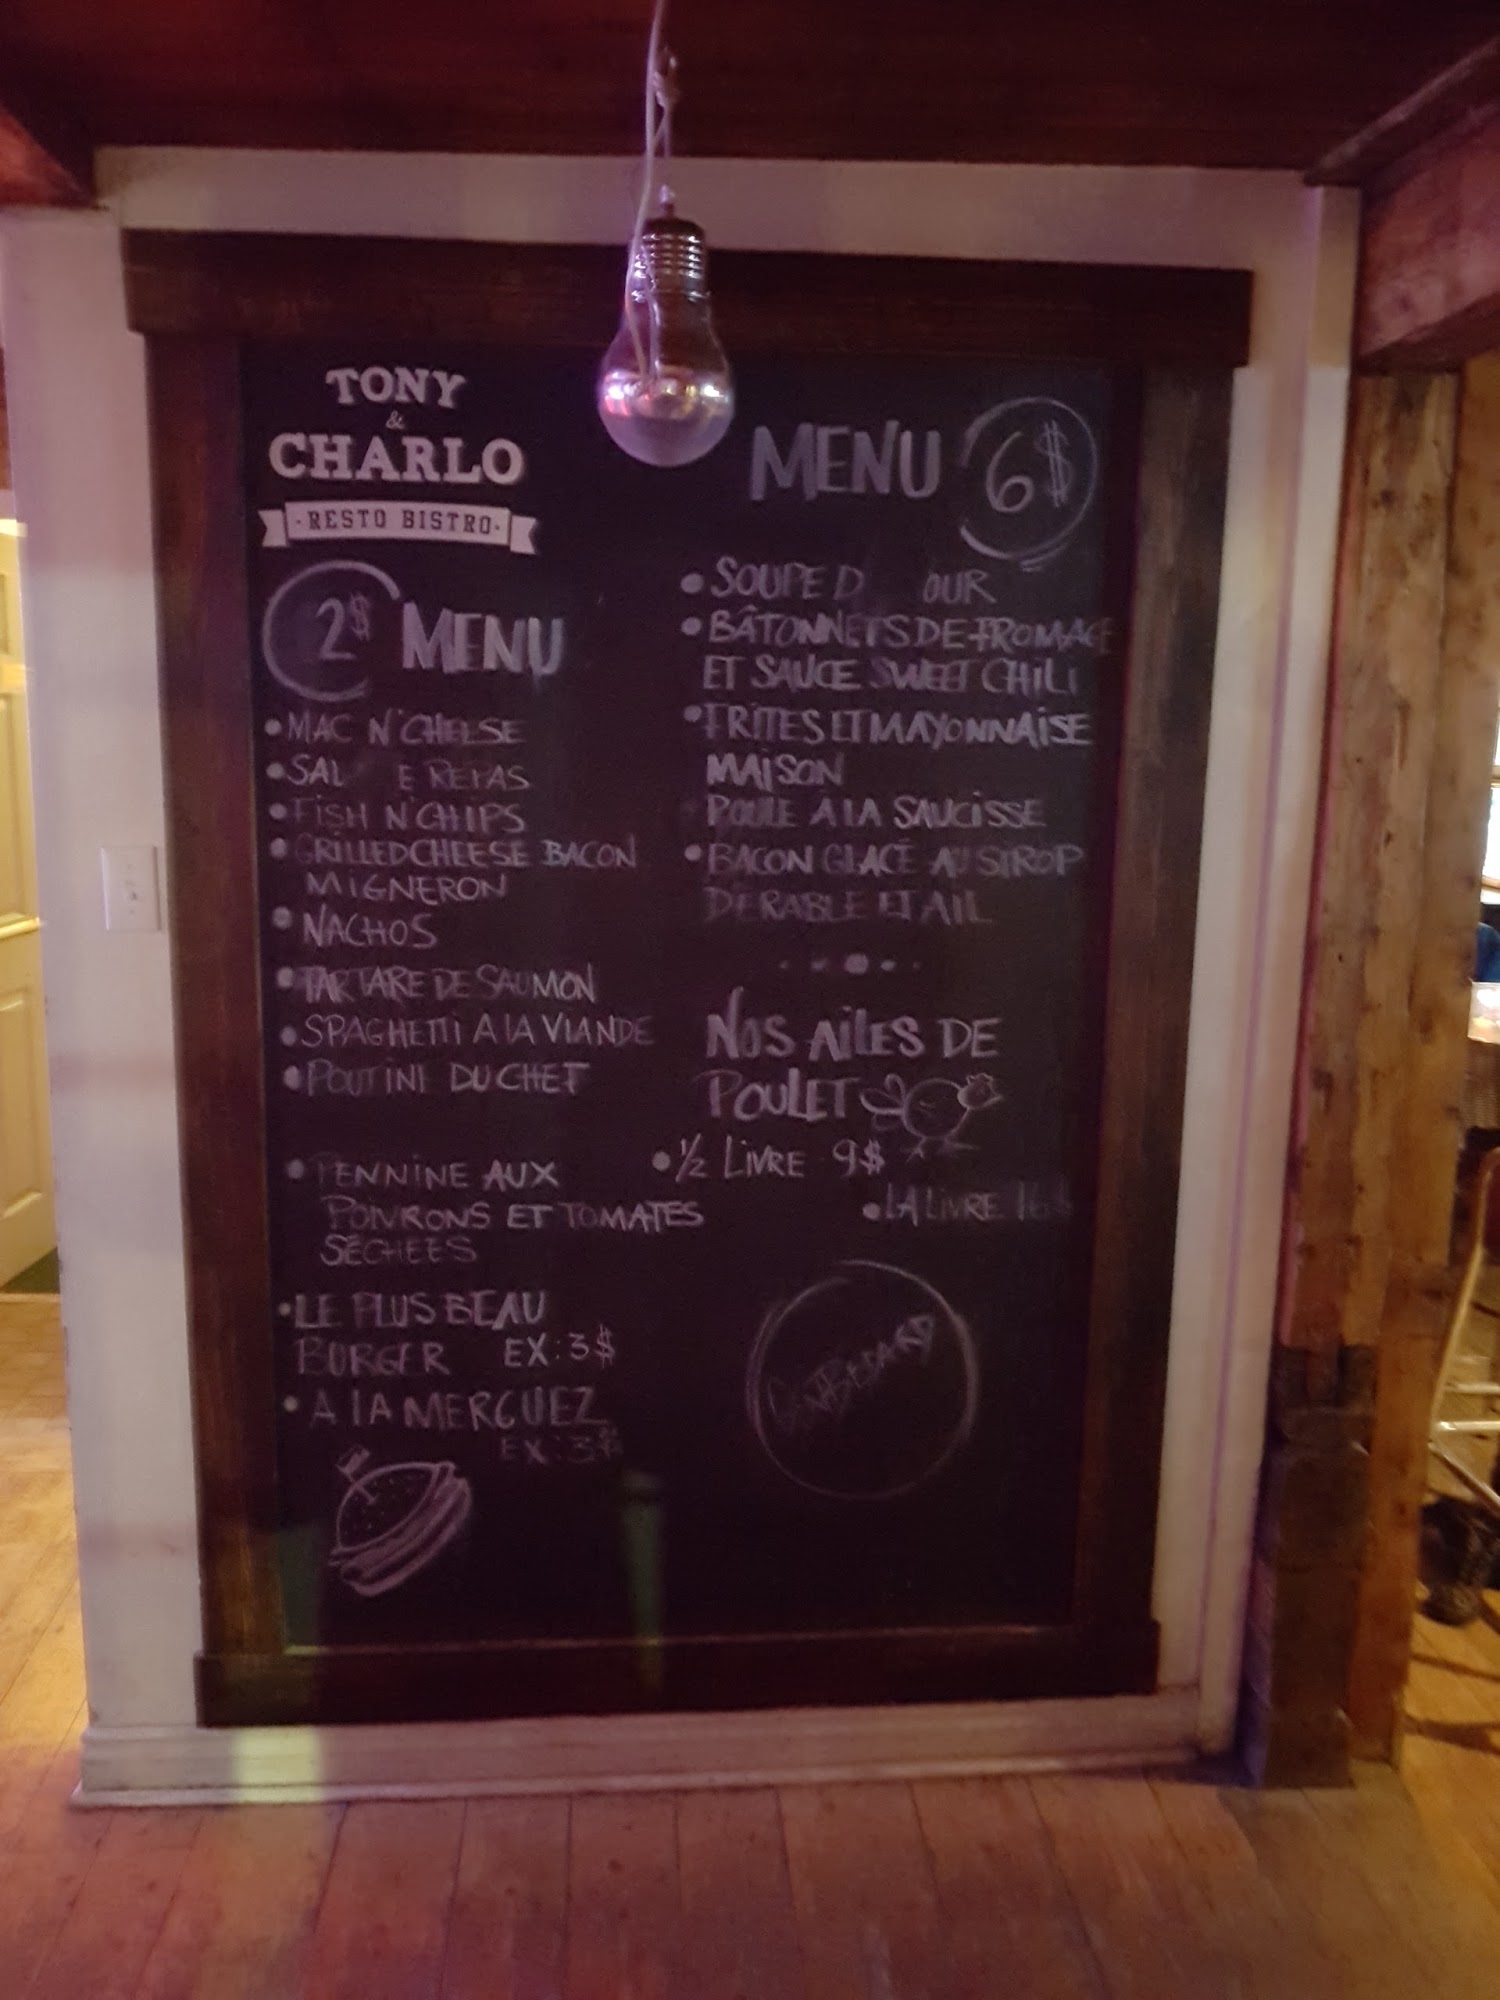 TONY
&
CHARLO
-RESTO BISTRO-
2$ MENU
• MAC N'CHEESE
• SAL E REPAS
• FISH N'CHIPS
• GRILLED CHEESE BACON
MIGNERON
• NACHOS
• TARTARE DE SAUMON
• SPAGHETTI A LA VIANDE
• POUTINE DU CHEF
• PENNINE AUX
POIVRONS ET TOMATES
SÉCHÉES
• LE PLUS BEAU
BURGER EX: 3$
• A LA MERGUEZ
EX: 3$
MENU 6$
• SOUPE D OUR
• BÂTONNETS DE FROMAGE
ET SAUCE SWEET CHILI
• FRITES ET MAYONNAISE
MAISON
POULE A LA SAUCISSE
• BACON GLACÉ AU SIROP
D'ERABLE ET AIL
NOS AILES DE
POULET
• 1/2 LIVRE 9$
• LA LIVRE 16$